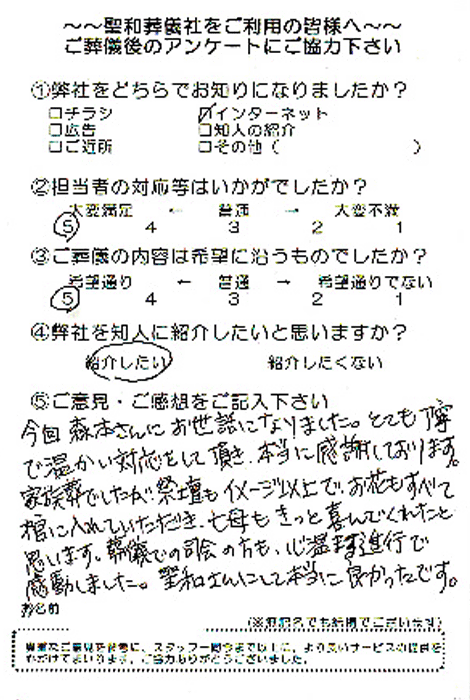 ～～聖和葬儀社をご利用の皆様へ～～
ご葬儀後のアンケートにご協力下さい
①弊社をどちらでお知りになりましたか？
□チラシ ☑インターネット
□広告 □知人の紹介
□ご近所 □その他（ ）
②担当者の対応等はいかがでしたか？
大変満足 ← 普通 → 大変不満
5 4 3 2 1
③ご葬儀の内容は希望に沿うものでしたか？
希望通り ← 普通 → 希望通りでない
5 4 3 2 1
④弊社を知人に紹介したいと思いますか？
紹介したい 紹介したくない
⑤ご意見・ご感想をご記入下さい
今回森本さんにお世話になりました。とても丁寧
で温かい対応をして頂き、本当に感謝しております。
家族葬でしたが祭壇もイメージ以上で、お花もすべて
棺に入れていただき、亡母もきっと喜んでくれたと
思います。葬儀での司会の方も、心温まる進行で
感動しました。聖和さんにして本当に良かったです。
お名前
（※無記名でも結構でございます）
貴重なご意見を参考に、スタッフ一同今まで以上に、より良いサービスの提供を
心がけてまいります。ご協力ありがとうございました。